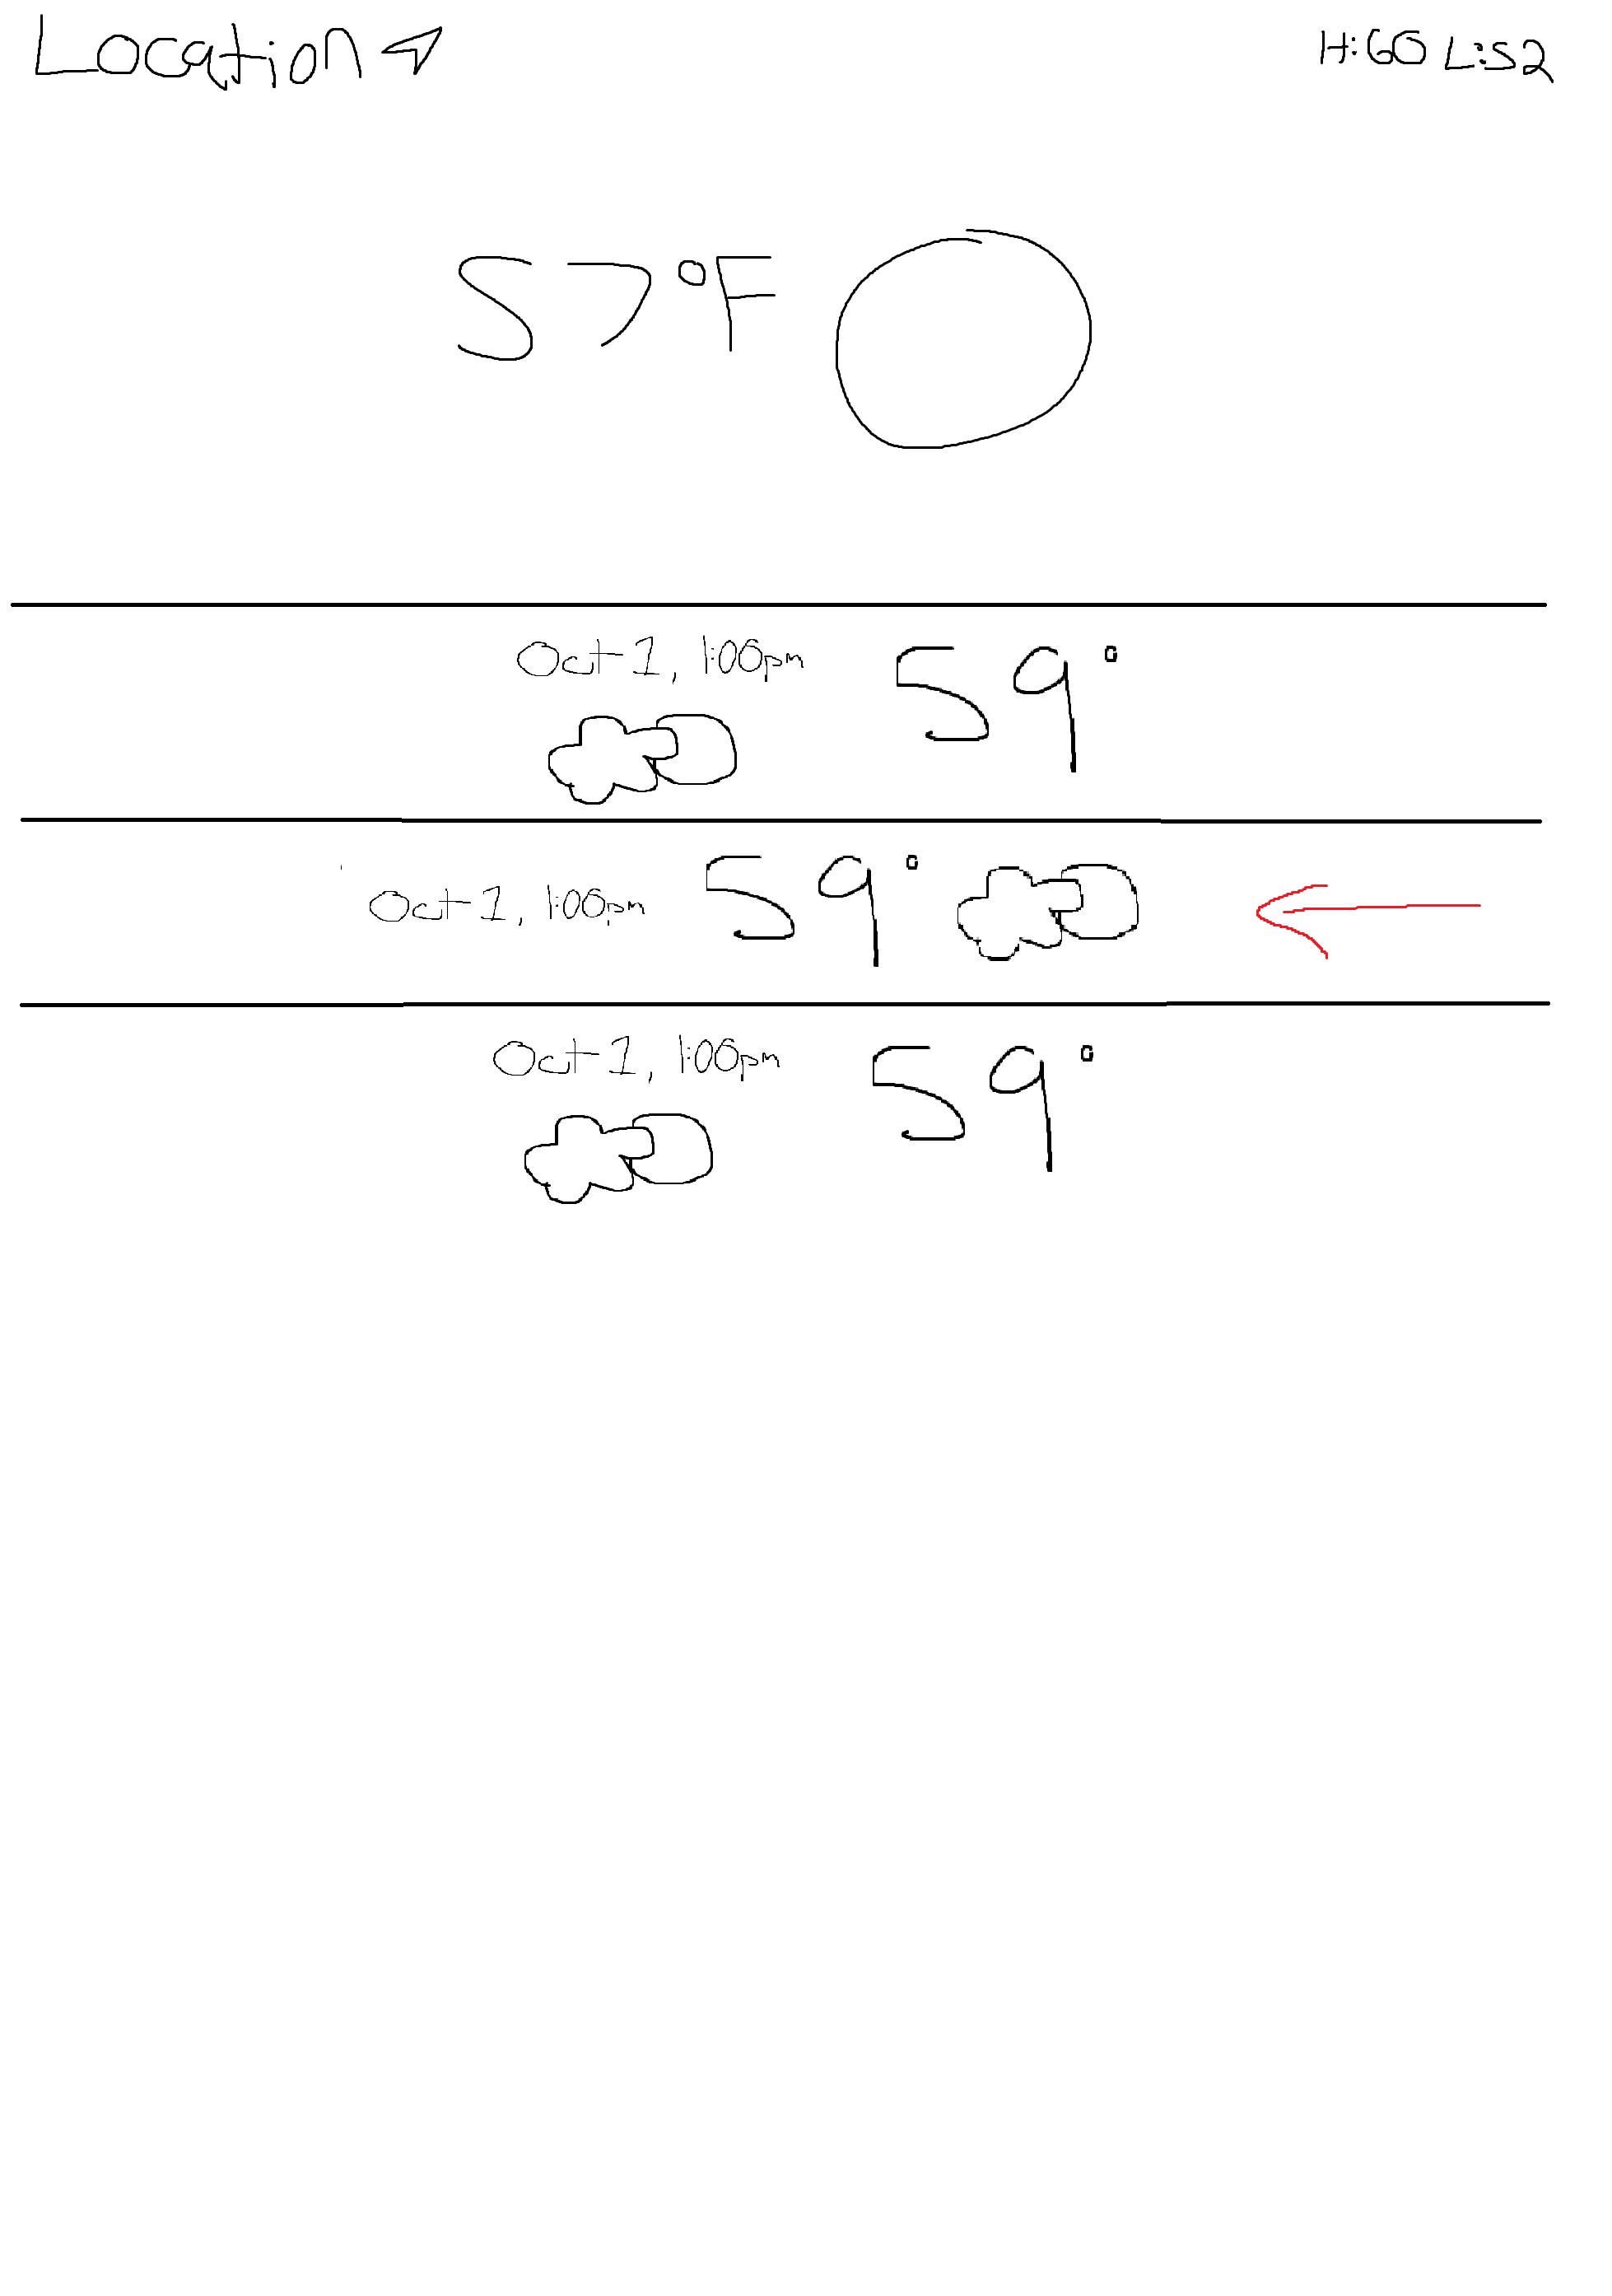 Location
H:60 L:52
57°F
Oct 1, 1:00pm 59°
Oct 1, 1:00pm 59°
Oct 1, 1:00pm 59°